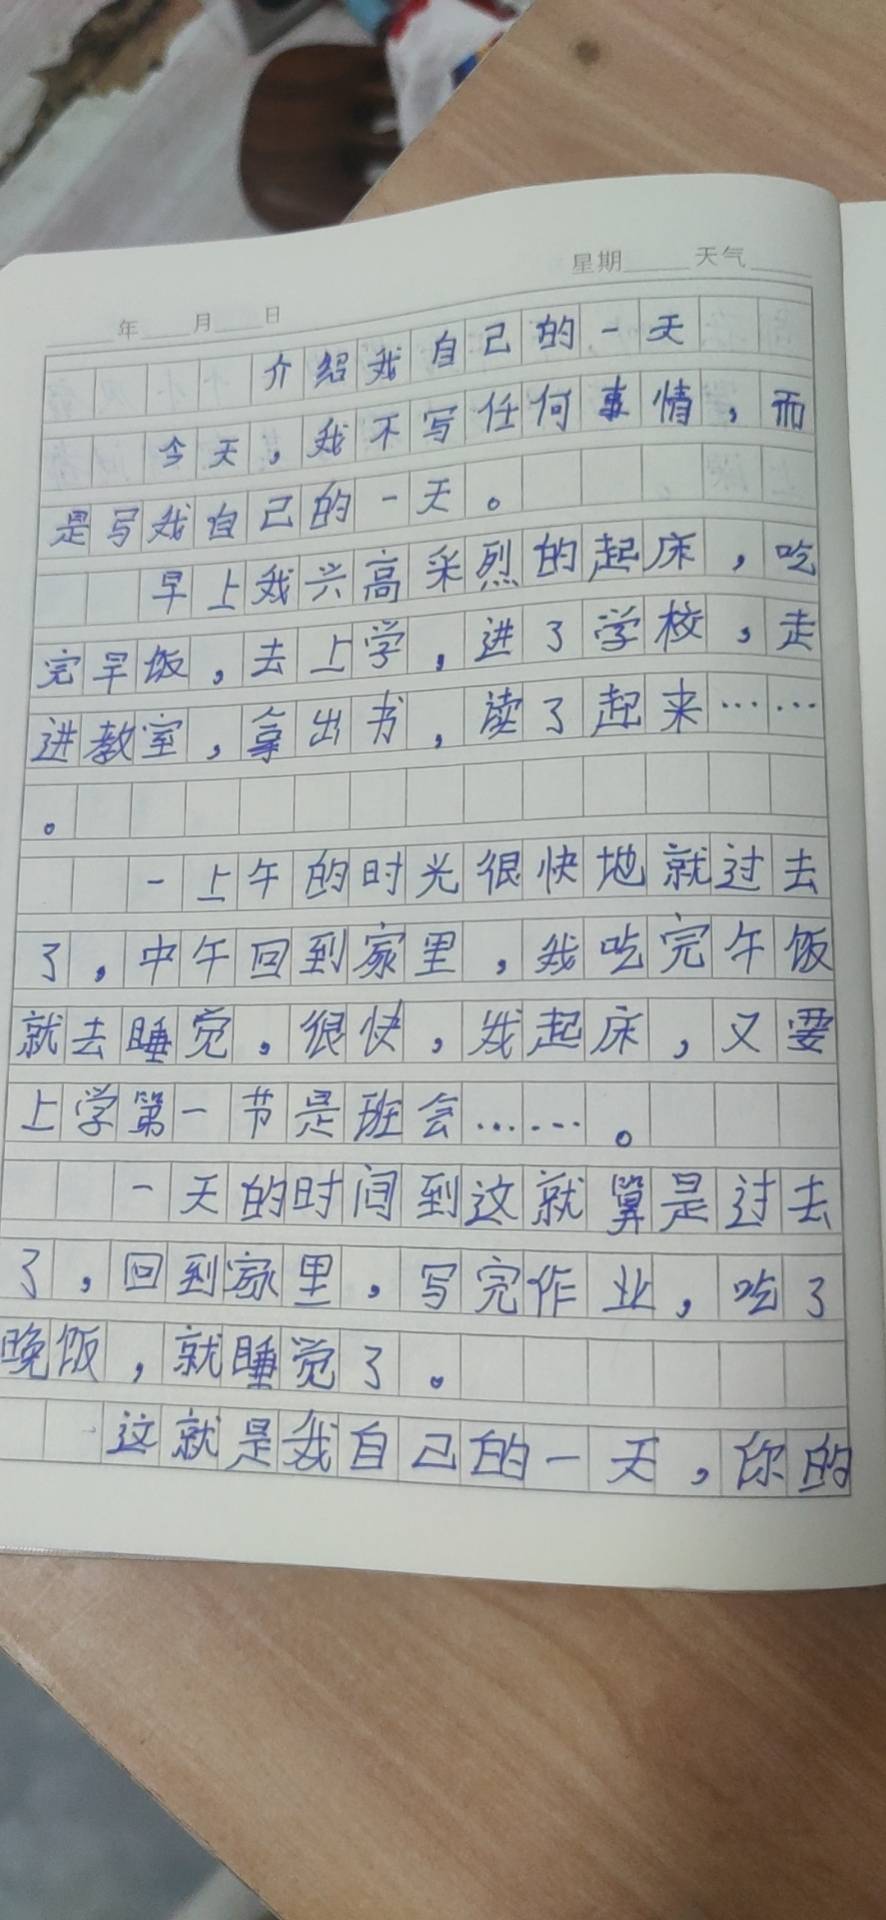 星期 天气
年 月 日
介绍我自己的一天
今天,我不写任何事情,而
是写我自己的一天。
早上我兴高采烈的起床,吃
完早饭,去上学,进了学校,走
进教室,拿出书,读了起来……
。
一上午的时光很快地就过去
了,中午回到家里,我吃完午饭
就去睡觉。很快,我起床,又要
上学第一节是班会……。
一天的时间到这就算是过去
了,回到家里,写完作业,吃了
晚饭,就睡觉了。
这就是我自己的一天,你的